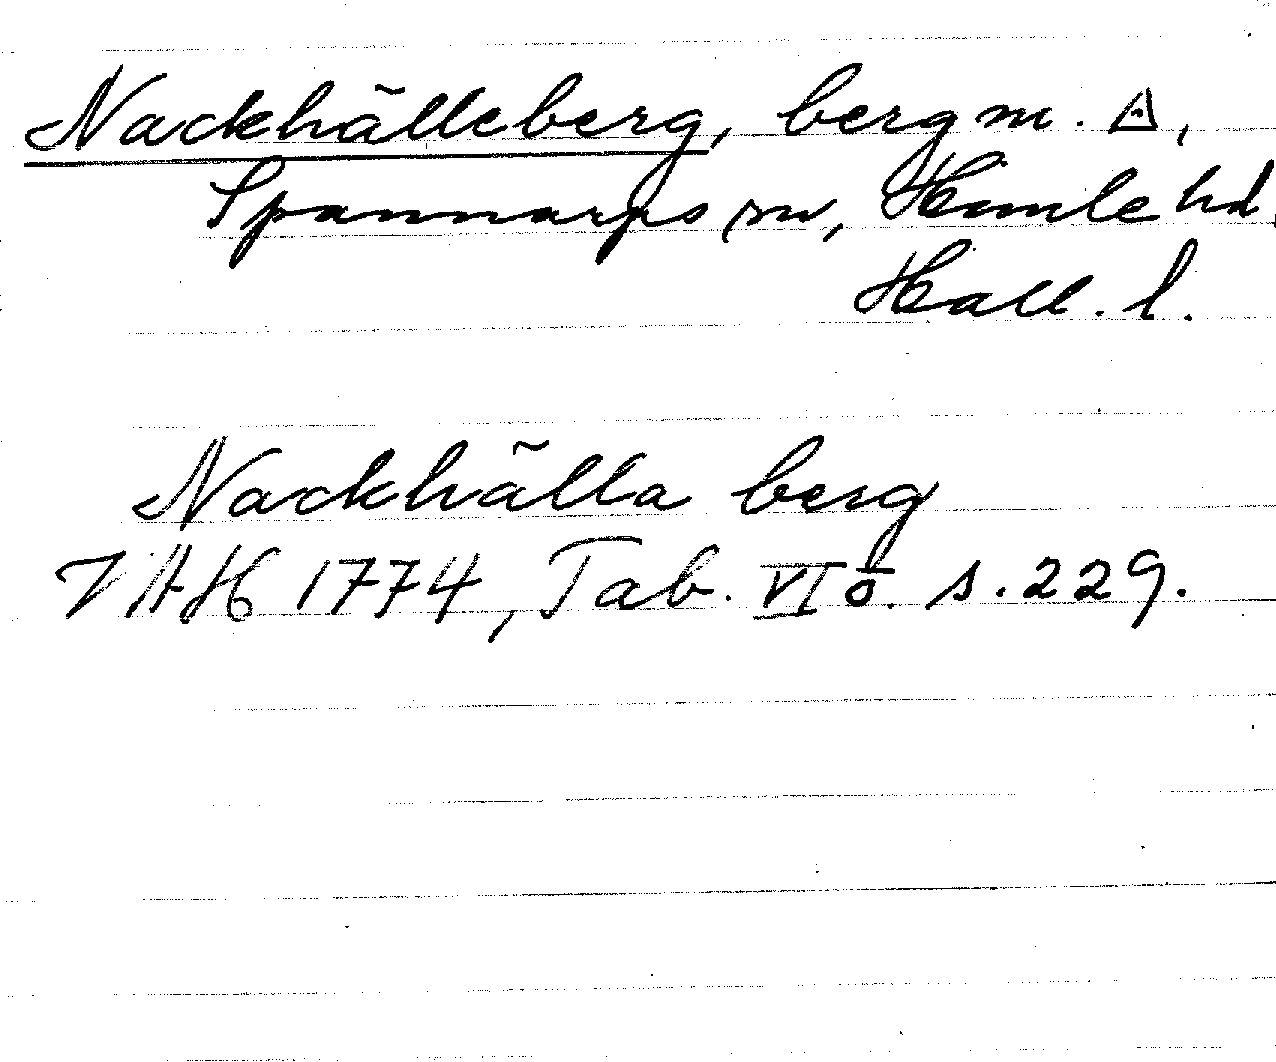 Nackhälleberg, berg m. ◬,
Spannarps sn, Himle hd
Hall. l.
Nackhälla berg
VAH 1774, Tab. VI ö. s. 229.